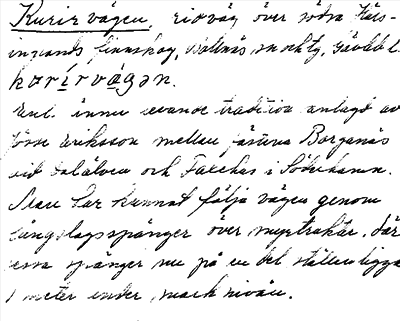 Kurirvägen, ridväg över södra Häls-
inglands finnskog, Hallnäs sn och tg, Gävleb l.
kɷrírvägən.
Enl. ännu levande tradition anlagd av
Jöns Eriksson mellan fästena Borganäs
vid Dalälven och Faxehus i Söderhamn.
Man har kunnat följa vägen genom
långslagsspänger över myrtrakter, där
dessa spänger nu på en del ställen ligga
1 meter under marknivån.